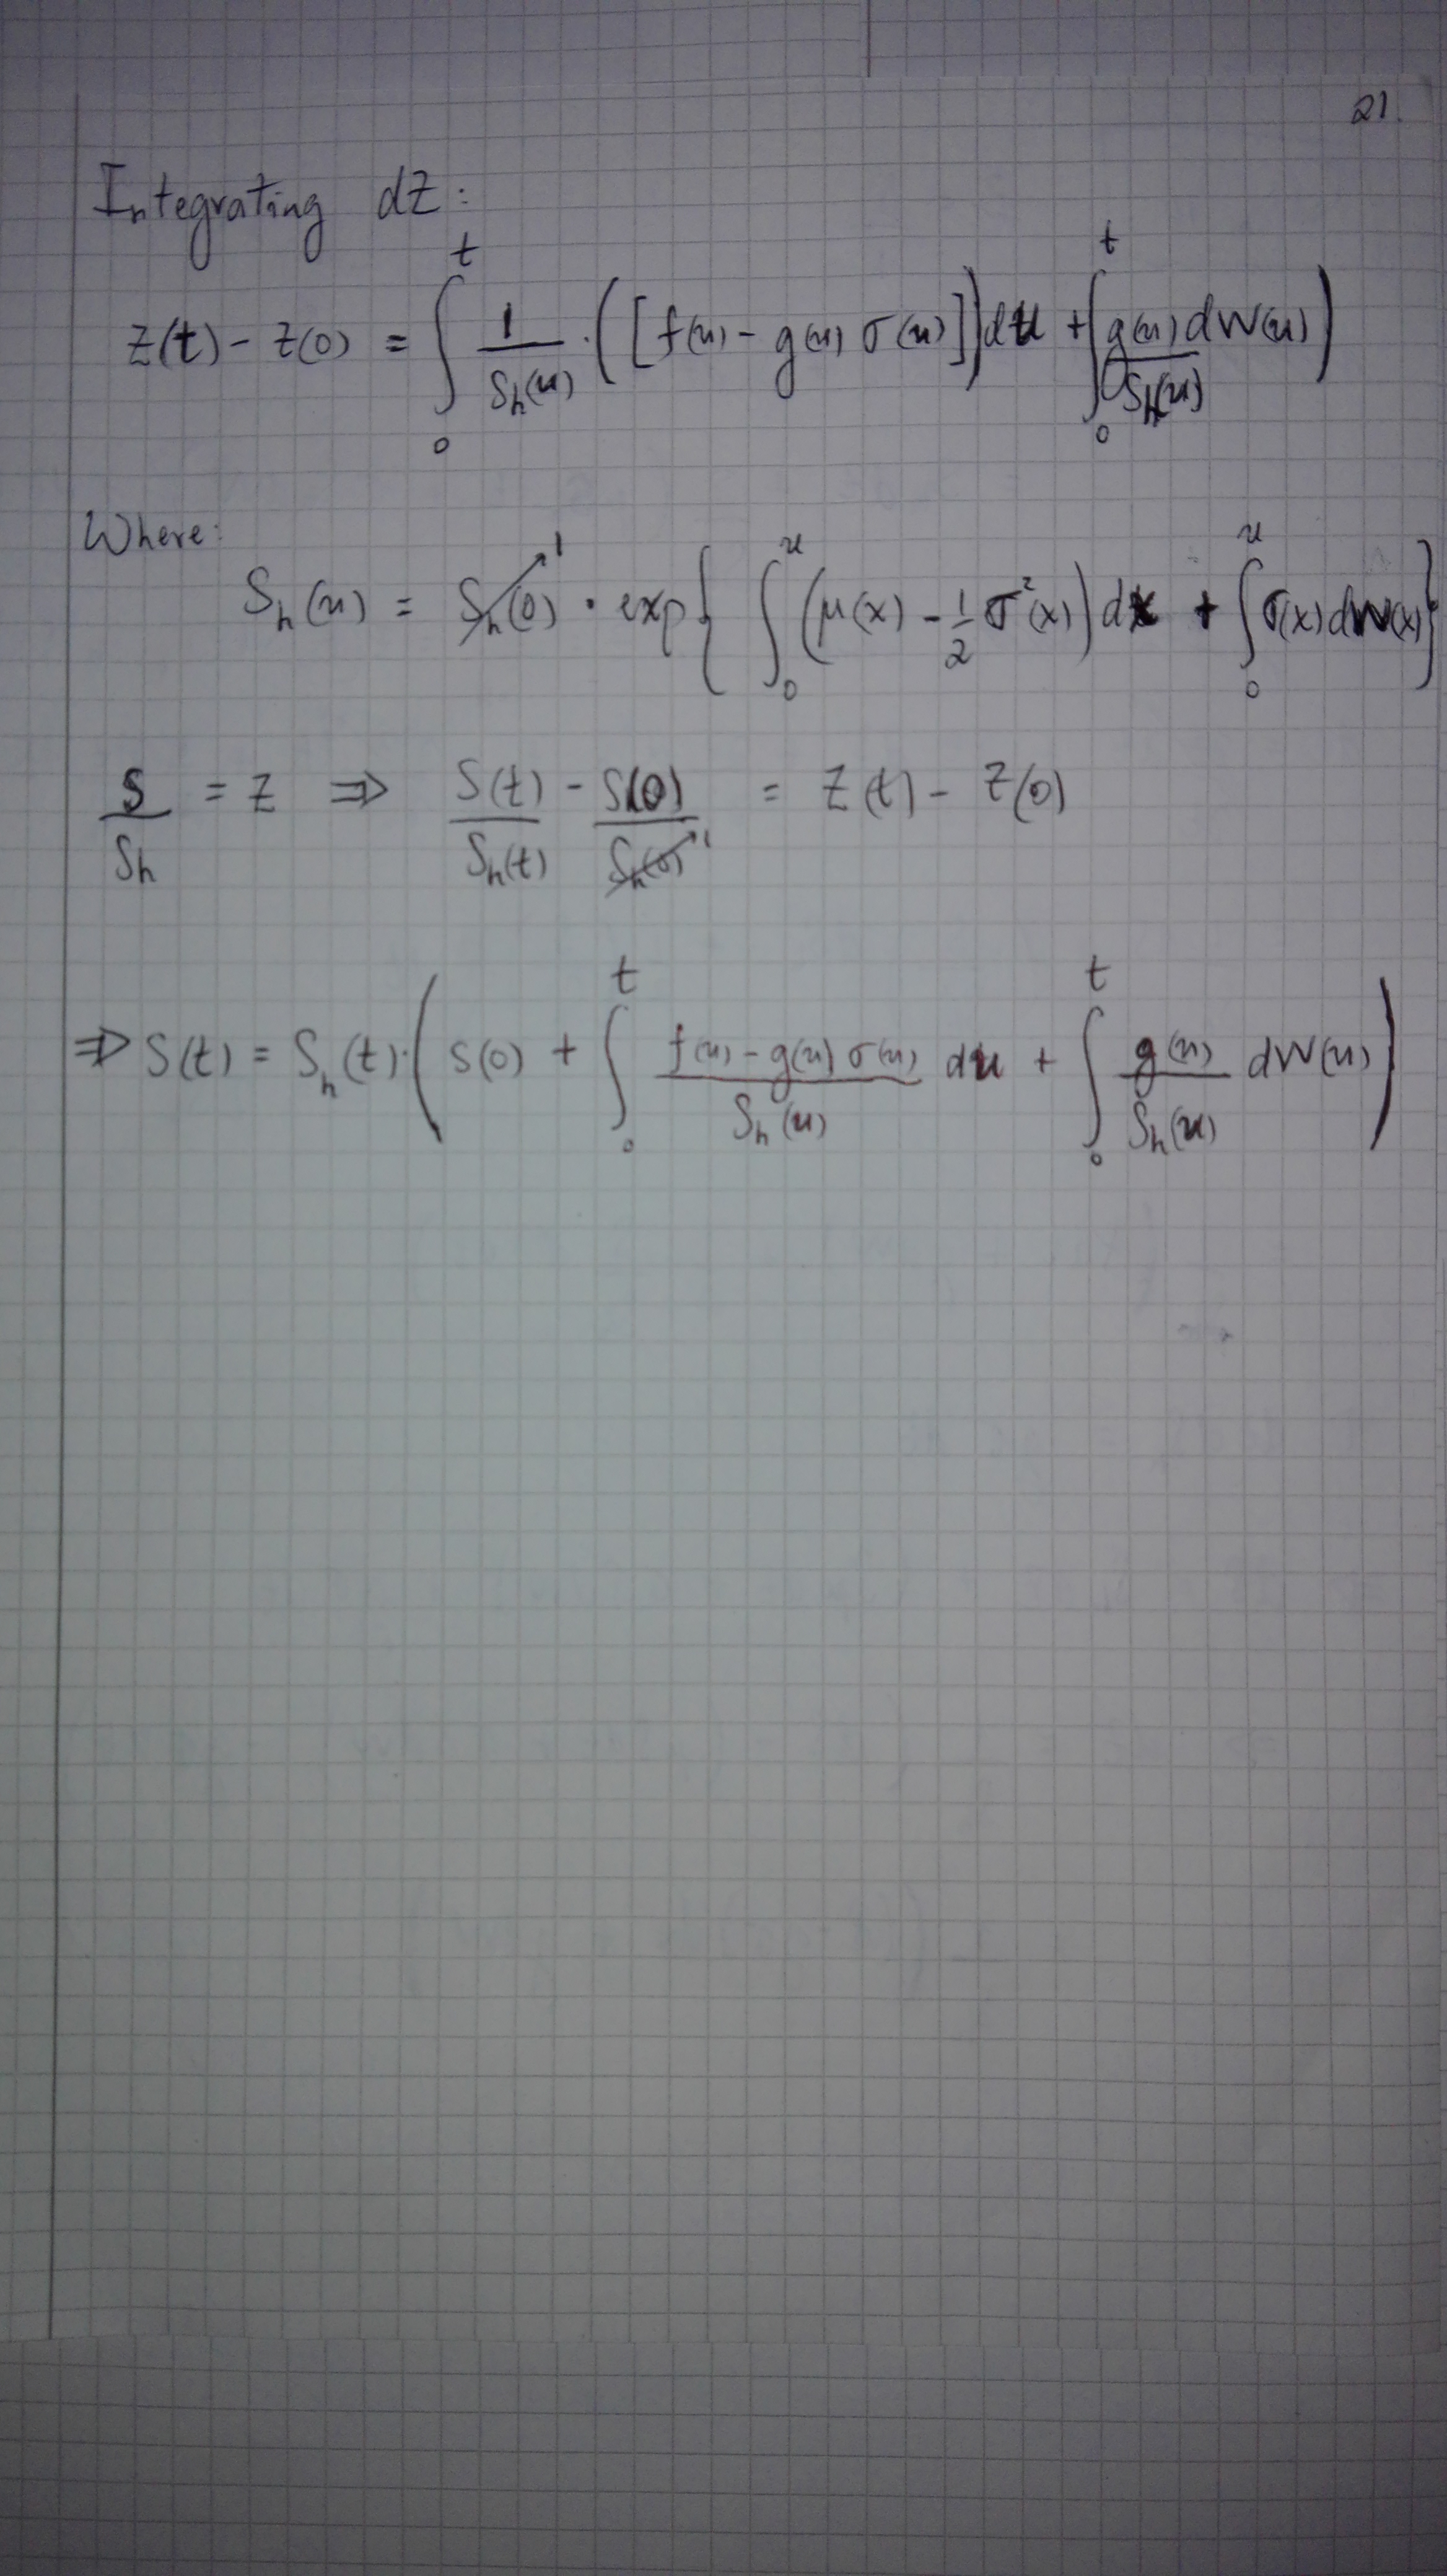 21.
Integrating dZ:
Z(t) - Z(0) = ∫₀ᵗ 1/Sₕ(u) · ([f(u) - g(u) σ(u)]) du + ∫₀ᵗ g(u) dW(u)/Sₕ(u) )
Where:
Sₕ(u) = Sₕ(0)↗1 · exp{ ∫₀ᵘ (μ(x) - 1/2 σ²(x)) dx + ∫₀ᵘ σ(x) dW(x) }
S/Sₕ = Z ⇒ S(t)/Sₕ(t) - S(0)/Sₕ(0)↗1 = Z(t) - Z(0)
⇒ S(t) = Sₕ(t) · ( S(0) + ∫₀ᵗ (f(u) - g(u) σ(u))/Sₕ(u) du + ∫₀ᵗ g(u)/Sₕ(u) dW(u) )